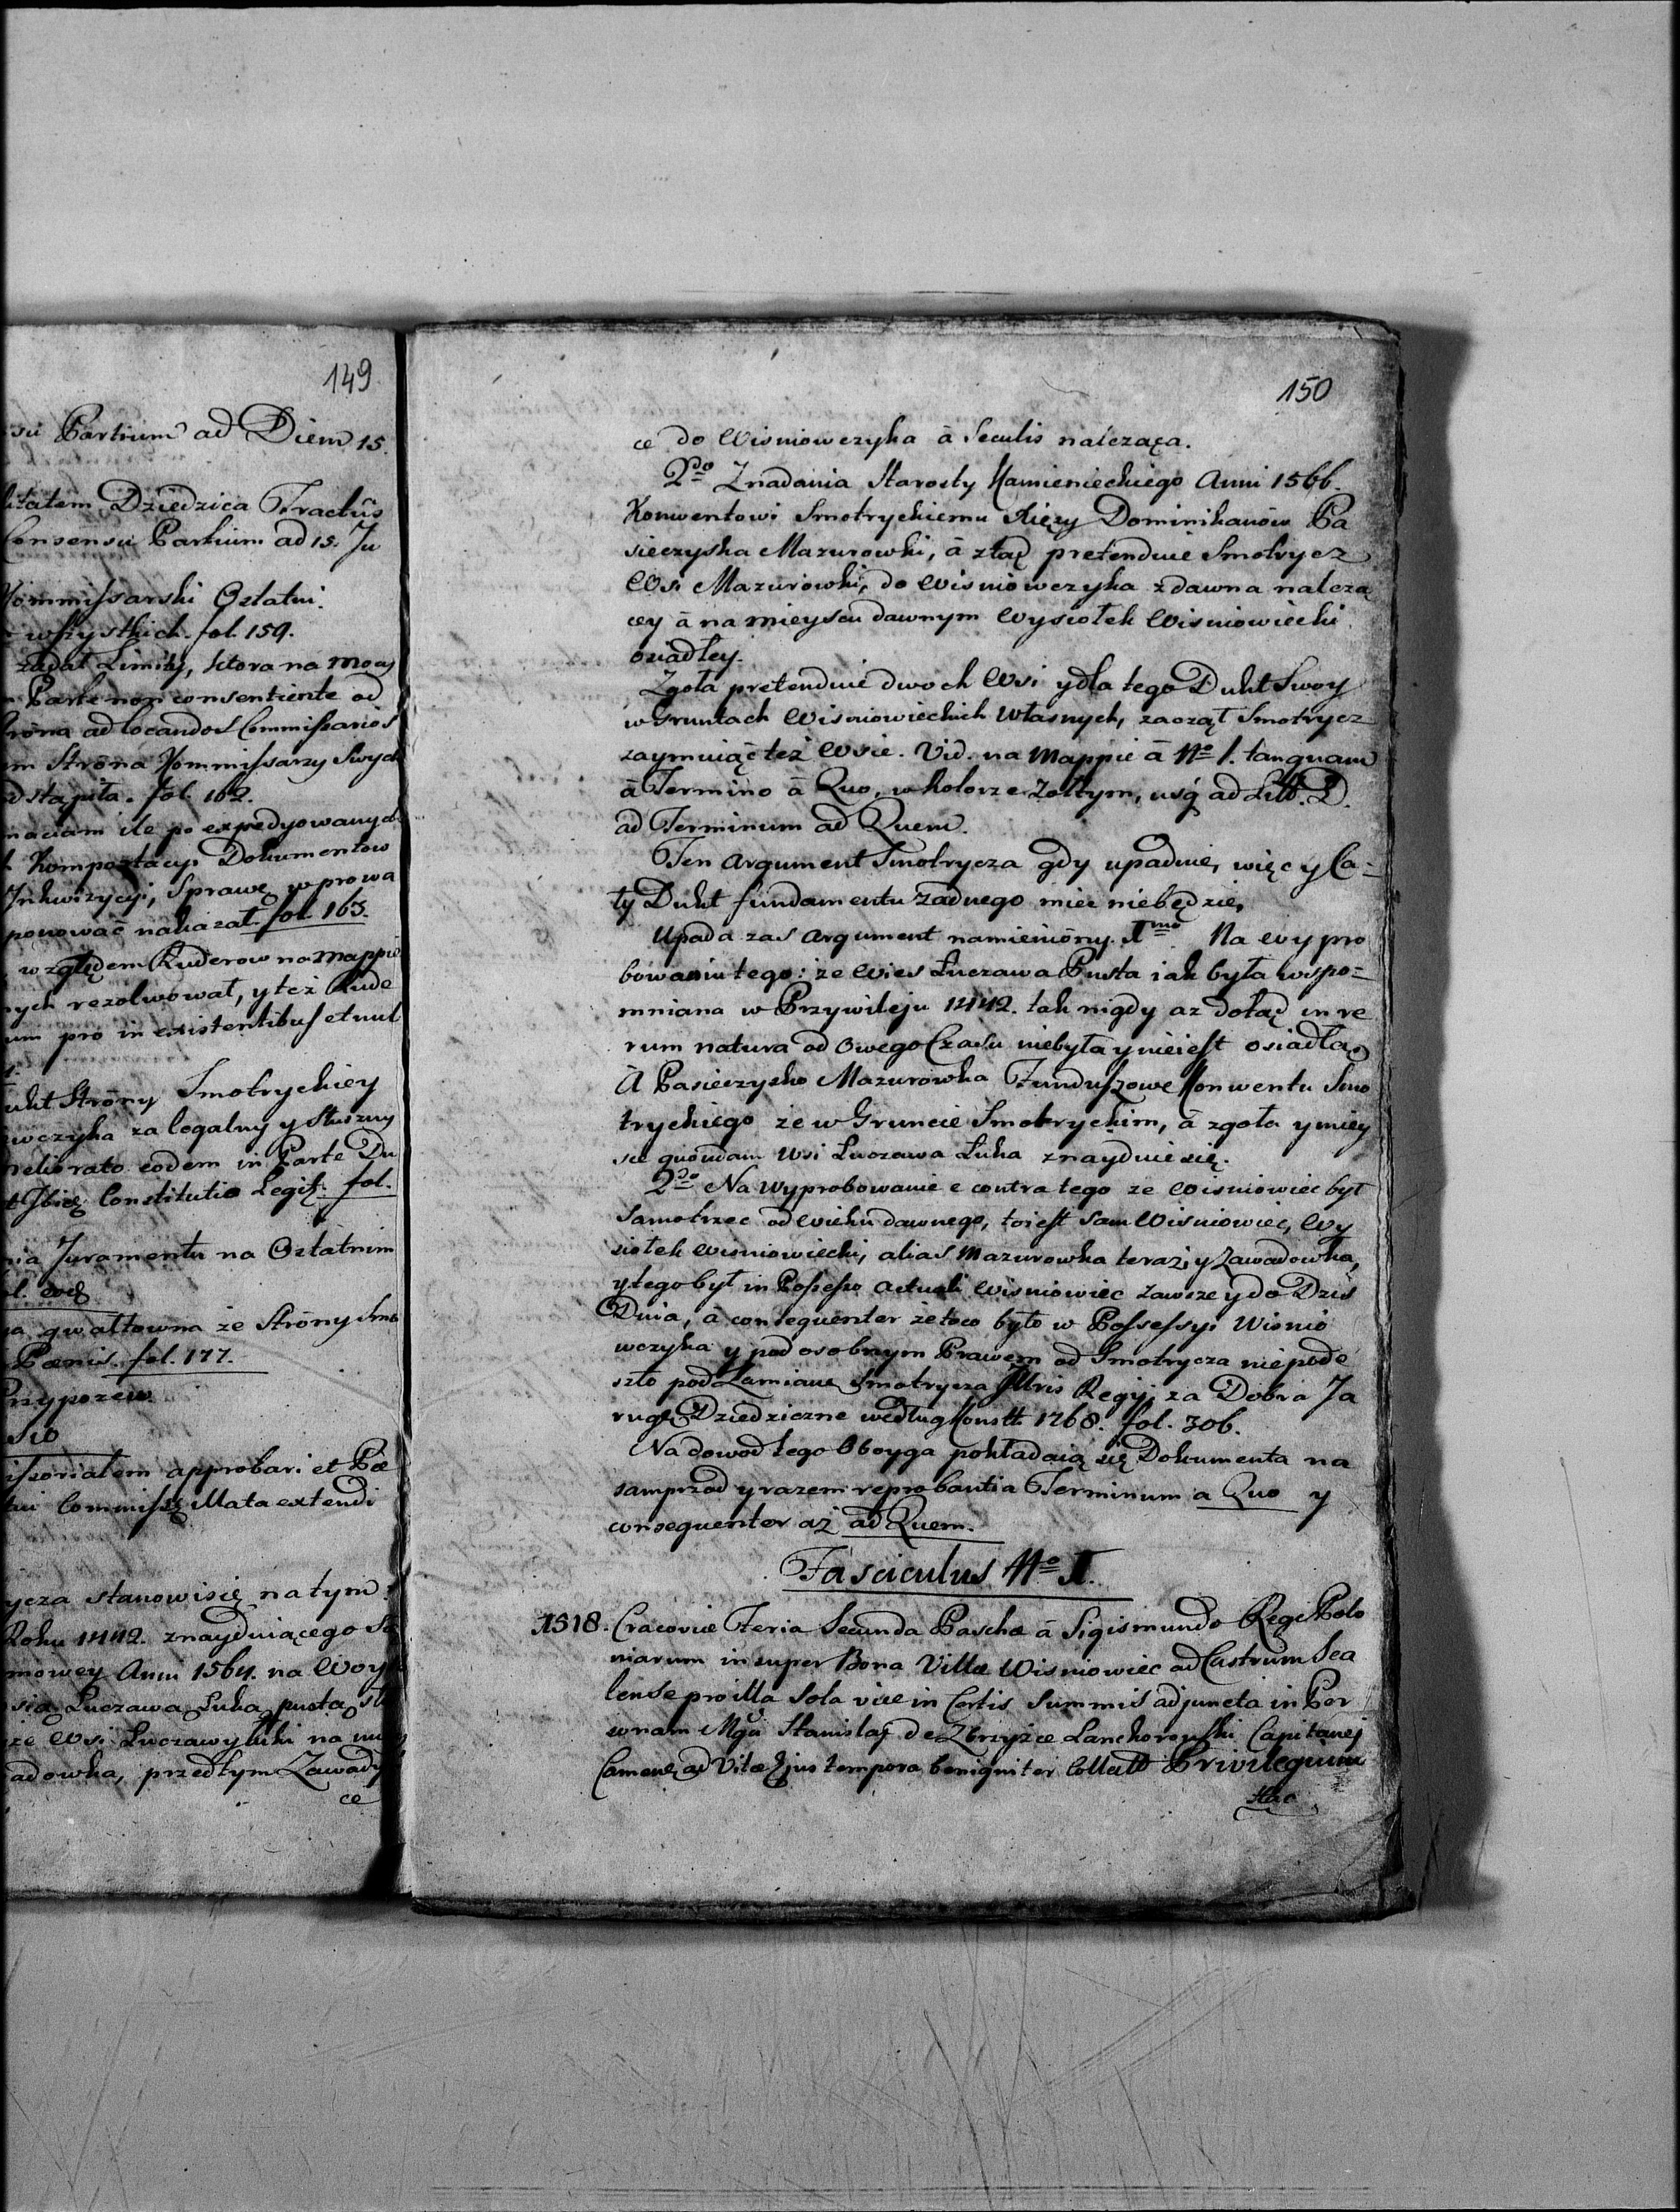 149
su Partium ad Diem 15.
litatem Dziedzica Tractus
Consensu Partium ad 15. Ju
Kommissarski Ostatni.
wszystkich. fol. 159.
żądał Limity, ktora na mocy
Parte non consentiente od
ad locandos Commissarios
m Strona Kommissarzy Swych
dstąpiła. fol. 162.
ile po expedyowanych
Komportacyi Dokumentow
Inkwizycyi, Sprawę wprowa
ponować nakazał fol. 163.
względem Ruderow na mappie
nych rezolwował, y też Rude
um pro in existentibus et nul
ukt Strony Smotryckiey
wczyka za legalny y Słuszny
eodem in Parte Du
Constitutio Legit. fol.
nia Juramentu na Ostatnim
l. eod
a gwałtowna ze Strony Smo
Pœnis. fol. 177.
Przypozew.
sio
approbari et Pœ
Mata extendi
ycza stanowi się na tym:
Roku 1442. znayduiącego Są
mowey Anni 1564. na Woy
sią Luczawa Luka pusta, sła
że Wsi Luczawy Łuki na mie
adowka, przedtym Zawady
ce
150
ce do Wisniowczyka à Seculis należąca.
2do Z nadania Starosty Kamienieckiego Anni 1566.
Konwentowi Smotryckiemu Xięży Dominikanów Pa
sieczyska Mazurowki, à ztąd pretenduie Smotrycz
Wsi Mazurowki, do Wisniowczyka zdawna należą
cey à na mieyscu dawnym Wysiołek Wisniowiecki
osiadłey.
Zgoła pretenduie dwoch Wsi y dla tego Dukt Swoy
w Gruntach Wisniowieckich Własnych, zaczął Smotrycz
zaymuiąć też Wsie. Vid. na Mappie à No 1. tanquam
à Termino à Quo, w kolorze Zołtym, usq ad Litt. D.
ad Terminum ad Quem.
Ten Argument Smotrycza gdy upadnie, więc y Ca=
ły Dukt fundamentu żadnego miec niebędzie,
Upada zas Argument namieniony. Imo Na Wypro
bowaniu tego: że Wies Łuczawa Pusta iak była wspo=
mniana w Przywileju 1442. tak nigdy az dotąd in re
rum natura od owego Czasu niebyła y nieiest osiadła.
A Pasieczysko Mazurowka Funduszowe Konwentu Smo
tryckiego że w Gruncie Smotryckim, à zgoła y miey
sce quondam Wsi Luczawa Łuka znayduie się.
2do Na Wyprobowanie e contra tego że Wisniowiec był
Samotrzec od Wieku dawnego, to iest Sam Wisniowiec, Wy
siołek Wisniowiecki, alias Mazurowka teraz, y Zawadowka,
y tego był in Possesso Actuali Wisniowiec Zawsze y do Dziś
Dnia, à consequenter że to co było w Possessyi Wisnio
wczyka y pod osobnym Prawem od Smotrycza niepode
szło pod Zamianę Smotrycza Juris Regij, za Dobra Ja
rugę Dziedziczne według Konstt 1768. fol. 306.
Na dowod tego Oboyga pokładaią się Dokumenta na
samprzod y razem reprobantia Terminum a Quo y
consequenter aż ad Quem.
Fasciculus No I.
1518. Cracoviæ Feria Secunda Paschæ à Sigismundo Rege Polo
niarum in super Bona Villæ Wisniowiec ad Castrum Sca
lense pro illa sola vice in Certis Summis adjuncta in Per
sonam Mgci Stanislai de Zbrzyże Lanckoronski Capitanej
Camene ad Vitæ Ejus tempora benigniter Collatt Privilegium